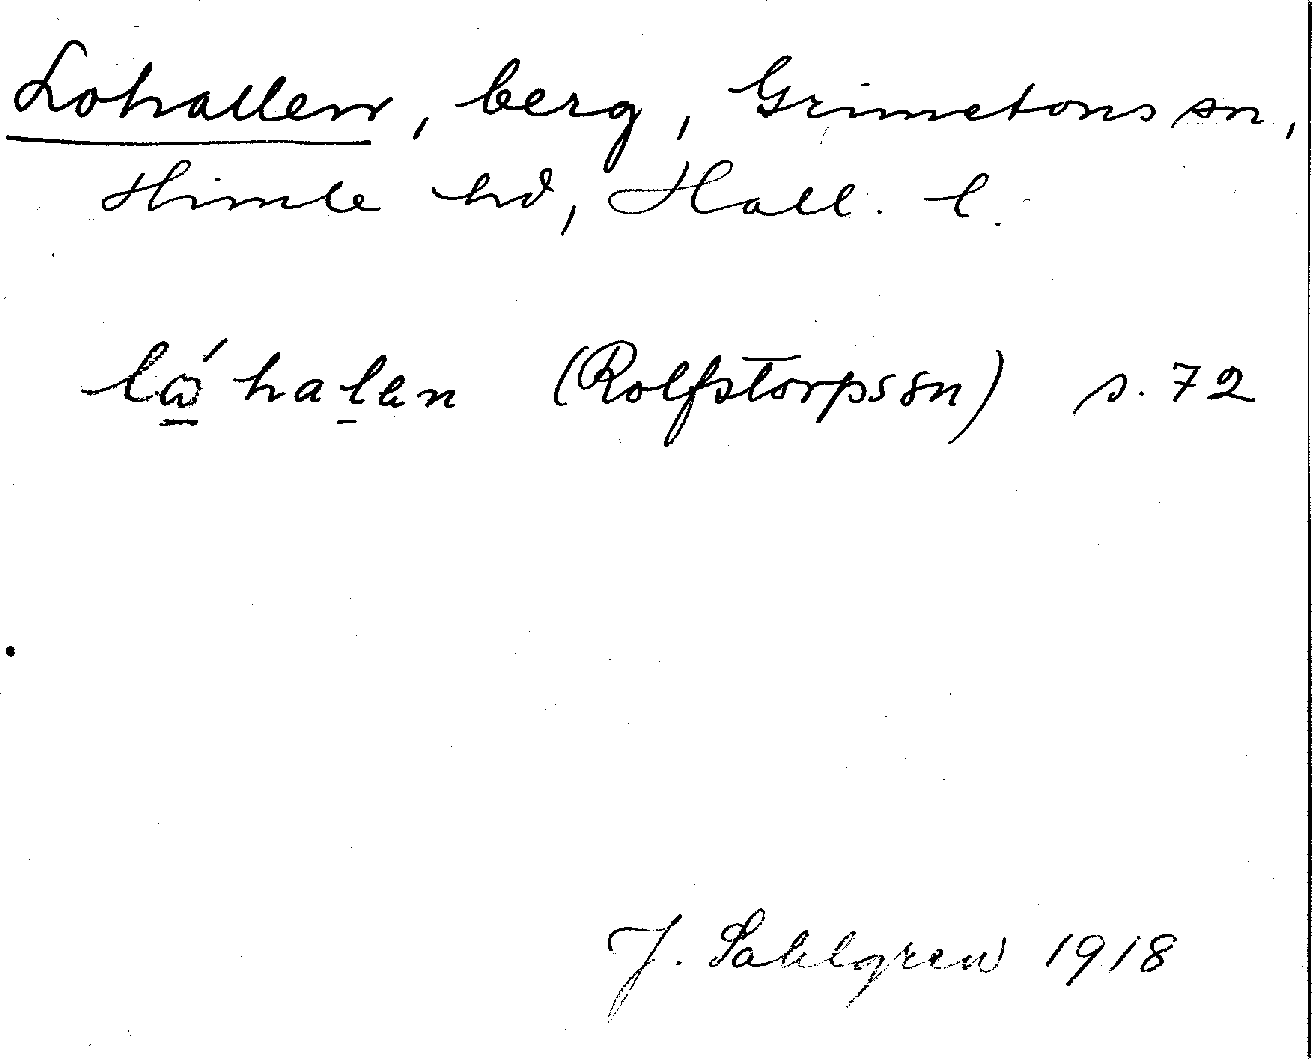 Lohallen, berg, Grimetons sn,
Himle hd, Hall. l.
lώ̲haḻen (Rolfstorpssn) s. 72
J. Sahlgren 1918